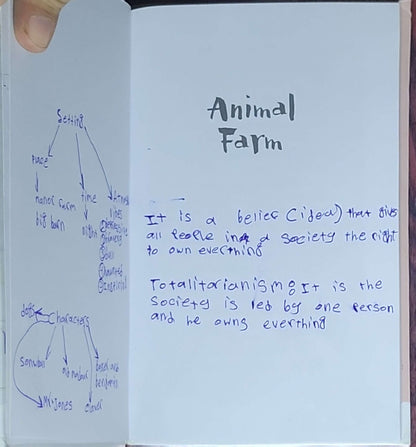 Setting
Place
manor farm
big barn
time
night
Characters
dogs
old major
boxer and
benjamin
Mr. Jones
clover
Animal
Farm
It is a belief (idea) that gives
all People in a society the right
to own everthing
Totalitarianism: It is the
society is led by one person
and he owns everthing